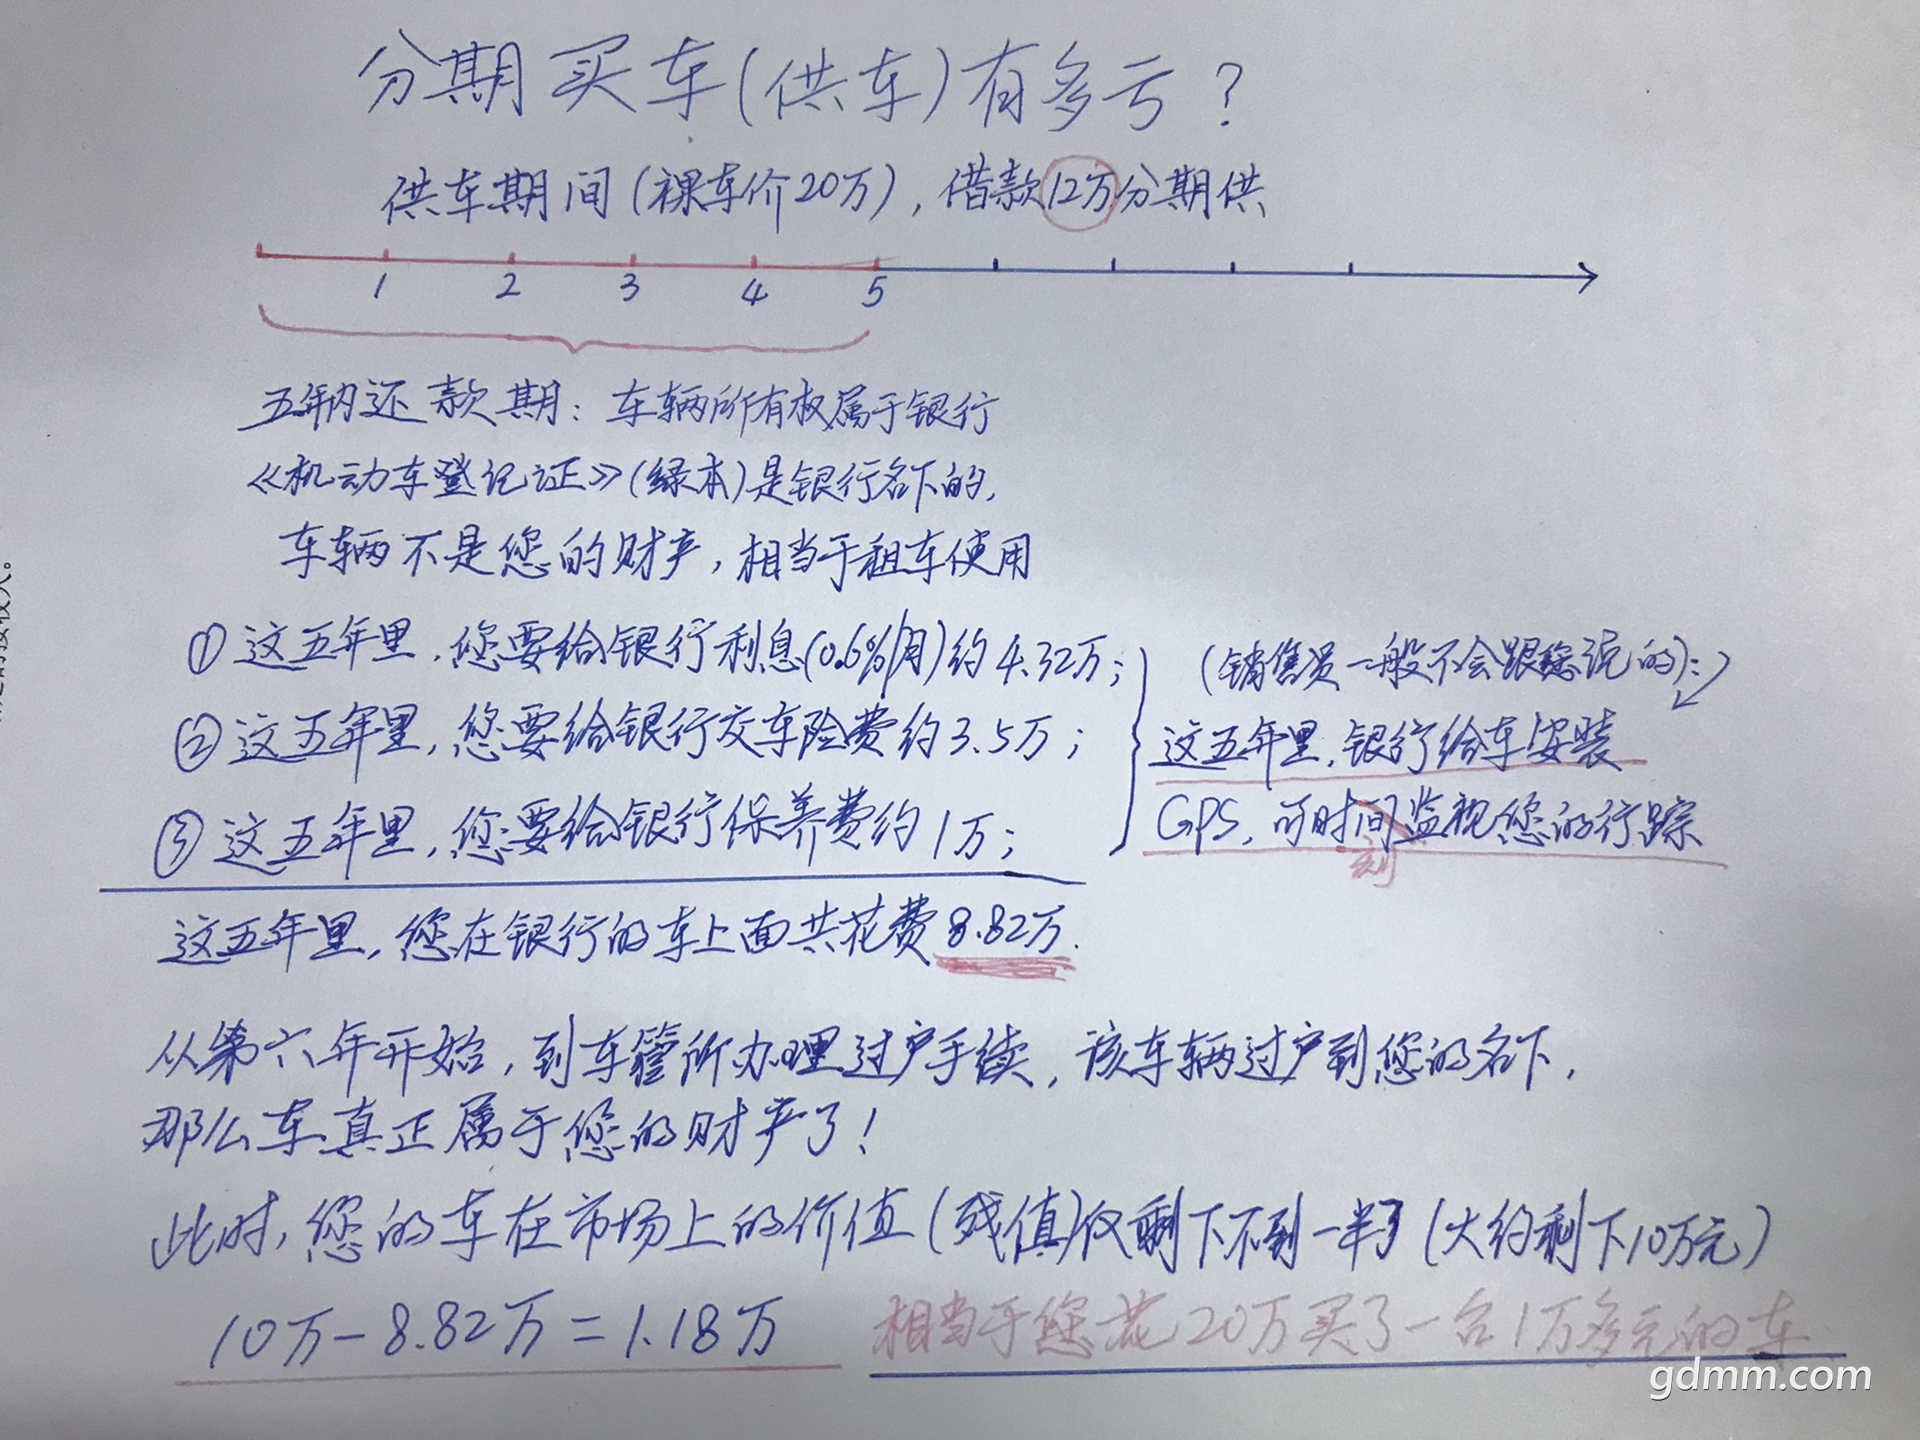 分期买车(供车)有多亏?
供车期间(裸车价20万),借款12万分期供
1 2 3 4 5
五年内还款期:车辆所有权属于银行
《机动车登记证》(绿本)是银行名下的,
车辆不是您的财产,相当于租车使用
①这五年里,您要给银行利息(0.6%/月)约4.32万;
(销售员一般不会跟您说的):
②这五年里,您要给银行交车险费约3.5万;
这五年里,银行给车安装
③这五年里,您要给银行保养费约1万;
GPS,可时间监视您的行踪
刻
这五年里,您在银行的车上面共花费8.82万.
从第六年开始,到车管所办理过户手续,该车辆过户到您的名下,
那么车真正属于您的财产了!
此时,您的车在市场上的价值(残值)仅剩下不到一半了(大约剩下10万元)
10万-8.82万=1.18万 相当于您花20万买了一台1万多元的车
gdmm.com